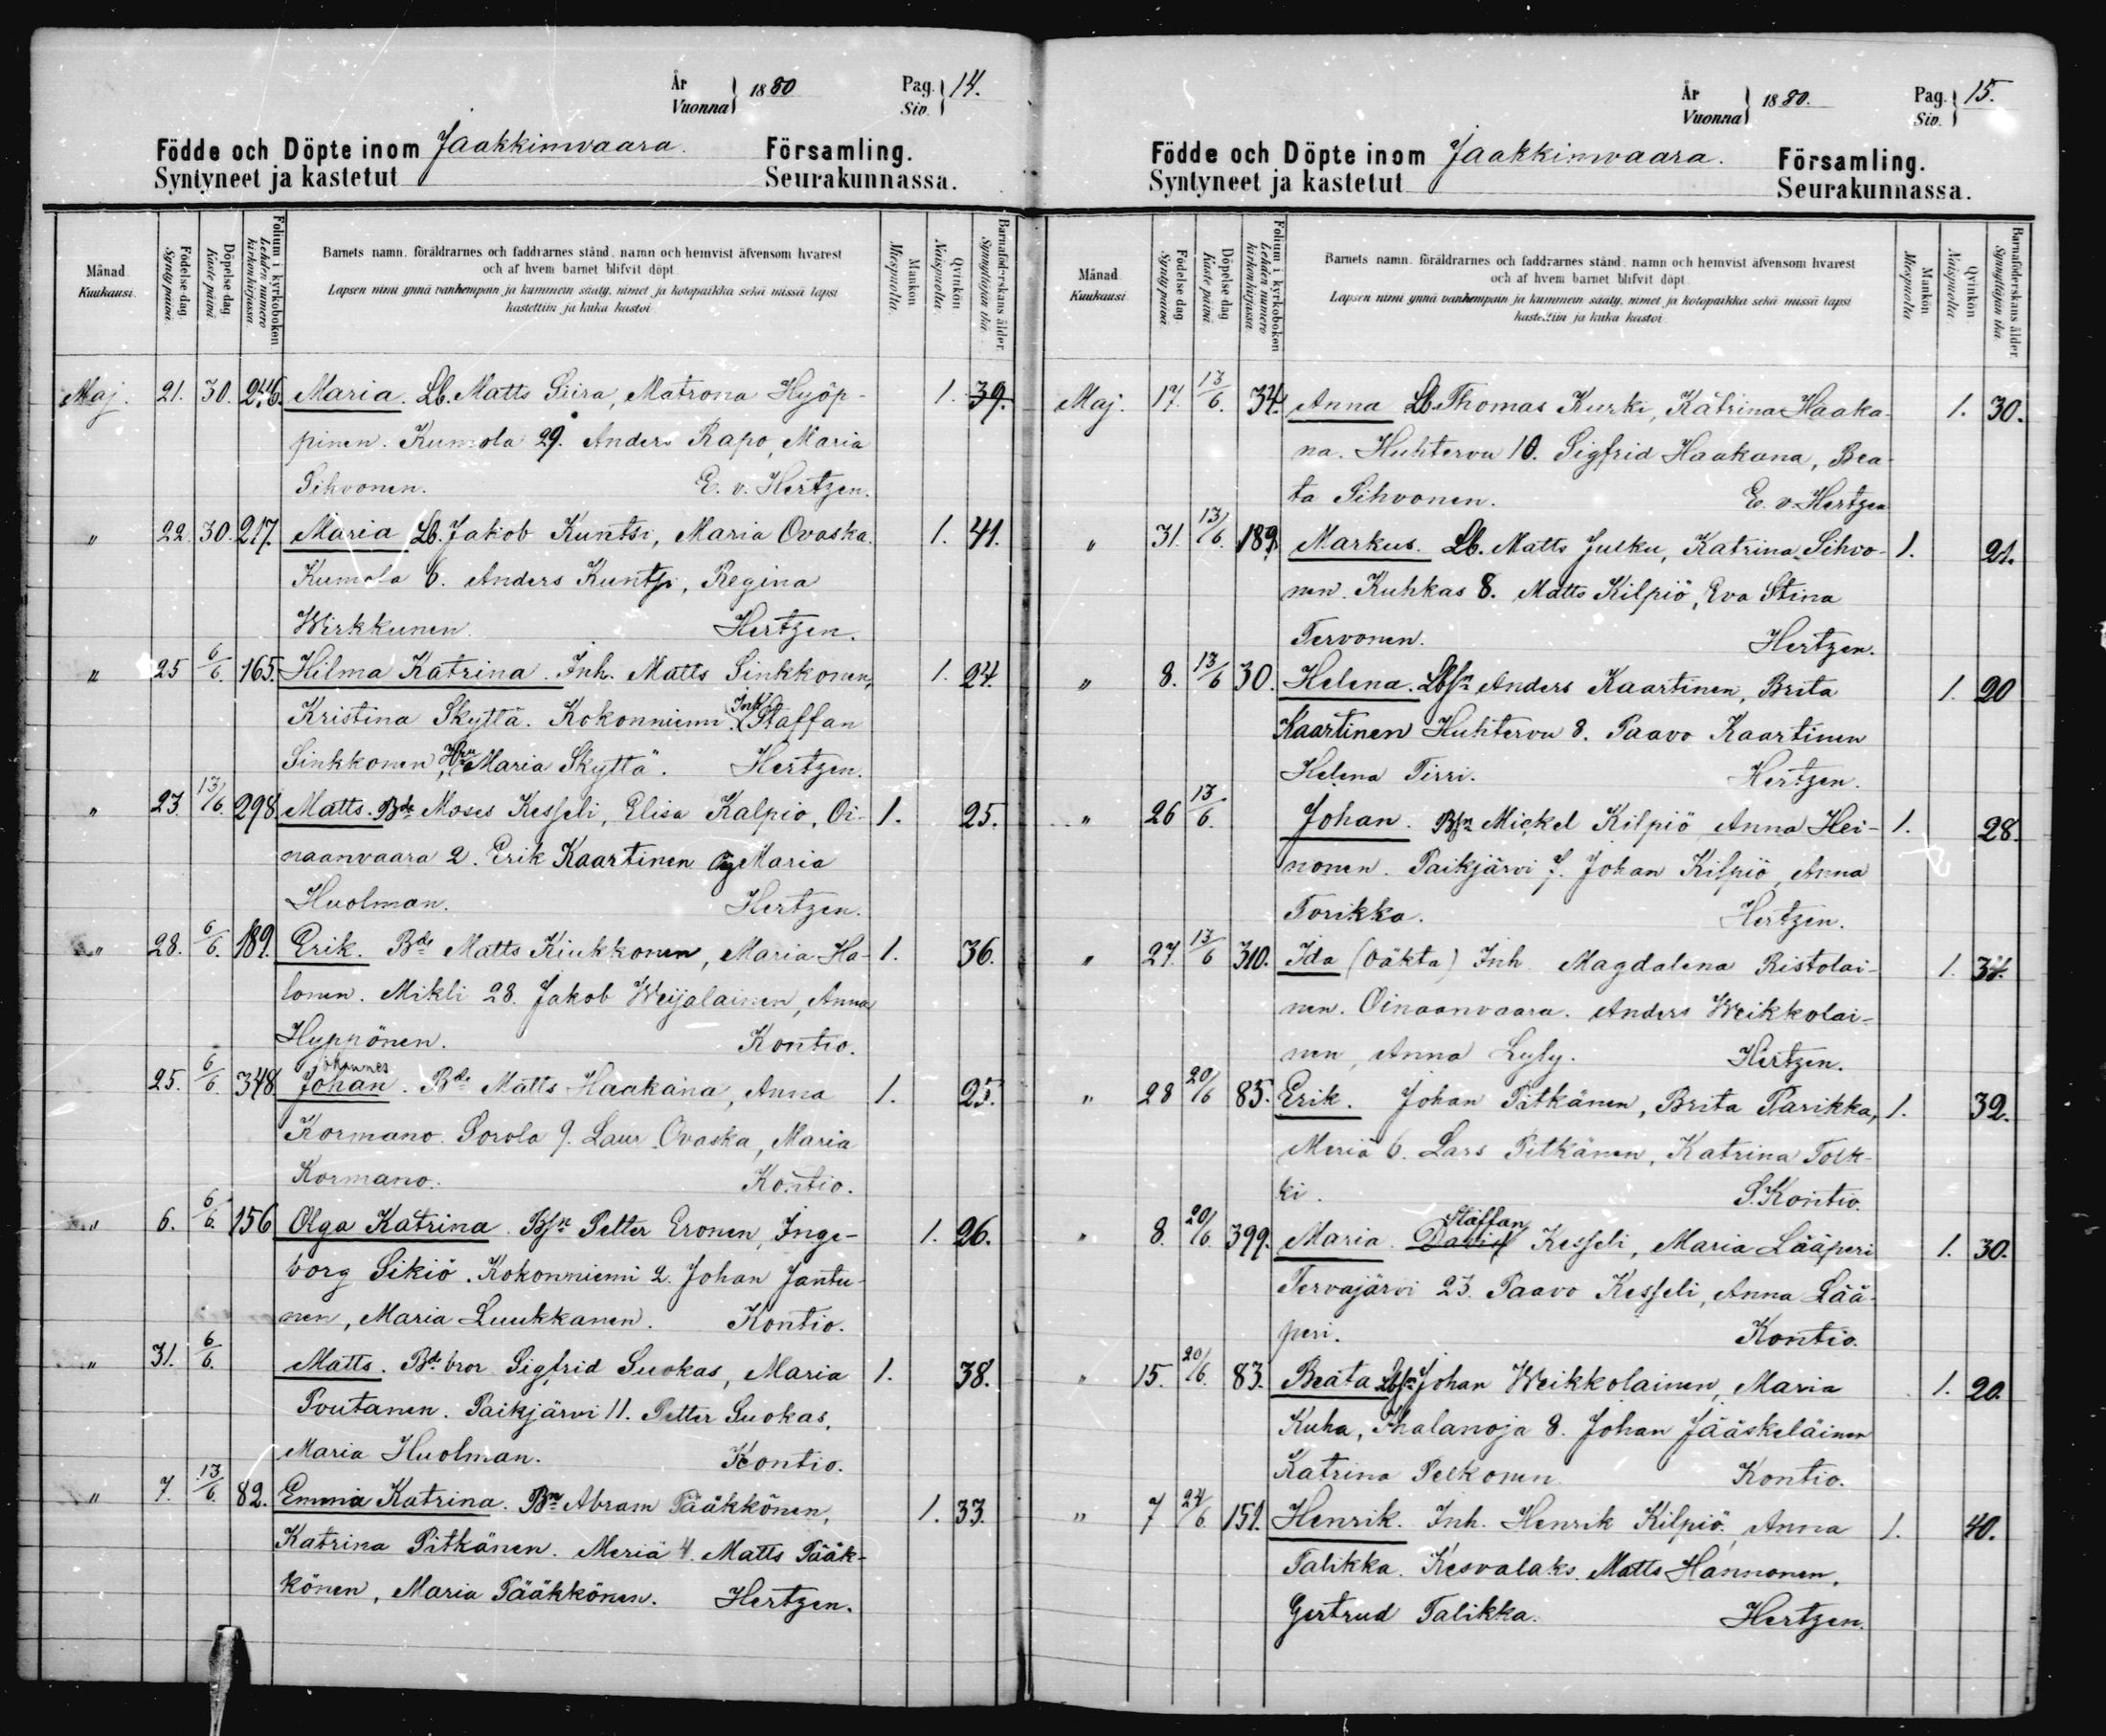 År
Vuonna
1880
Pag.
Siv.
14.
Födde och Döpte inom Jaakkimvaara. Församling.
Syntyneet ja kastetut Seurakunnassa.
Månad
Kuukausi.
Födelse dag.
Synty päivä.
Döpelse dag
Kaste päivä
Folium i kyrkoboken
Lehden numero kirkonkirjassa
Barnets namn, föräldrarnes och faddrarnes stånd, namn och hemvist äfvensom hvarest
och af hvem barnet blifvit döpt
Lapsen nimi ynnä vanhempain ja kummein sääty, nimet ja kotopaikka sekä missä lapsi
kastettiin ja kuka kastoi
Mankön
Miespuolta.
Qvinkön.
Naispuolta.
Barnaföderskans ålder.
Synnyttäjän ikä.
Maj. 21. 30. 246. Maria. Lb. Matts Siira, Matrona Hyöp- 1. 39.
pinen. Kumola 29. Anders Rapo, Maria
Sihvonen. E. v. Hertzen.
" 22. 30. 217. Maria Lb. Jakob Kuntsi, Maria Ovaska. 1. 41.
Kumola 6. Anders Kuntsi, Regina
Wirkkunen. Hertzen.
" 25 6/6. 165. Hilma Katrina. Inh. Matts Sinkkonen, 1. 24.
Kristina Skyttä. Kokonniemi. Inh. Staffan
Sinkkonen, Maria Skyttä. Hertzen.
" 23. 13/6. 298. Matts. Bde Moses Kesseli, Elisa Kalpio, Oi- 1. 25.
naanvaara 2. Erik Kaartinen og Maria
Huolman. Hertzen.
" 28. 6/6. 189. Erik. Bde Matts Kiukkonen, Maria Ha- 1. 36.
lonen. Mikli 28. Jakob Weijalainen, Anna
Hyppönen. Kontio.
25. 6/6. 348. Johan. Johannes Bde Matts Haakana, Anna 1. 25.
Kormano. Sorola 9. Laur Ovaska, Maria
Kormano. Kontio.
" 6. 6/6. 156 Olga Katrina. Bsn Petter Eronen, Inge- 1. 26.
borg Sikiö. Kokonniemi 2. Johan Jantu-
nen, Maria Luukkanen. Kontio.
" 31. 6/6. Matts. Bde bror Sigfrid Suokas, Maria 1. 38.
Poutanen. Paikjärvi 11. Petter Suokas,
Maria Huolman. Kontio.
" 7. 13/6. 82. Emmia Katrina. Bn Abram Pääkkönen, 1. 33.
Katrina Pitkänen. Meriä 4. Matts Pääk-
könen, Maria Pääkkönen. Hertzen.
År
Vuonna
1880.
Pag.
Siv.
15.
Födde och Döpte inom Jaakkimvaara. Församling.
Syntyneet ja kastetut Seurakunnassa.
Månad
Kuukausi
Födelse dag
Synty päivä
Döpelse dag
Kaste päivä
Folium i kyrkoboken
Lehden numero kirkonkirjassa
Barnets namn, föräldrarnes och faddrarnes stånd, namn och hemvist äfvensom hvarest
och af hvem barnet blifvit döpt
Lapsen nimi ynnä vanhempain ja kummein sääty, nimet ja kotopaikka sekä missä lapsi
kastettiin ja kuka kastoi
Mankön
Miespuolta
Qvinkön
Naispuolta.
Barnaföderskans ålder.
Synnyttäjän ikä.
Maj. 17. 13/6. 34. Anna Lb. Thomas Kurki, Katrina Haaka- 1. 30.
na. Huhtervu 10. Sigfrid Haakana, Bea-
ta Sihvonen. E. v. Hertzen
" 31. 13/6. 189. Markus. Lb. Matts Julku, Katrina Sihvo- 1. 21.
nen. Kuhkas 8. Matts Kilpiö, Eva Stina
Tervonen. Hertzen.
" 8. 13/6 30. Helena. Lbsn Anders Kaartinen, Brita 1. 20
Kaartinen Huhtervu 8. Paavo Kaartinen
Helena Tirri. Hertzen.
" 26 13/6. Johan. Bsn Mickel Kilpiö, Anna Hei- 1. 28.
nonen. Paikjärvi 7. Johan Kilpiö, Anna
Torikka. Hertzen.
" 27. 13/6 310. Ida (oäkta) Inh. Magdalena Ristolai- 1. 34.
nen. Oinaanvaara. Anders Weikkolai-
nen, Anna Lyly. Hertzen.
" 28 20/6 85. Erik. Johan Pitkänen, Brita Parikka, 1. 32.
Meriä 6. Lars Pitkänen, Katrina Tolk-
ki. S. Kontio.
" 8. 20/6. 399. Maria. David Staffan Kesseli, Maria Lääperi 1. 30.
Tervajärvi 23. Paavo Kesseli, Anna Lää-
peri. Kontio.
" 15. 20/6. 83. Beata Lbsn Johan Weikkolainen, Maria 1. 20.
Kuha, Ihalanoja 8. Johan Jääskeläinen
Katrina Pelkonen. Kontio.
" 7 24/6. 151. Henrik. Inh. Henrik Kilpiö, Anna 1. 40.
Talikka. Kesvalaks. Matts Hannonen,
Gertrud Talikka. Hertzen.